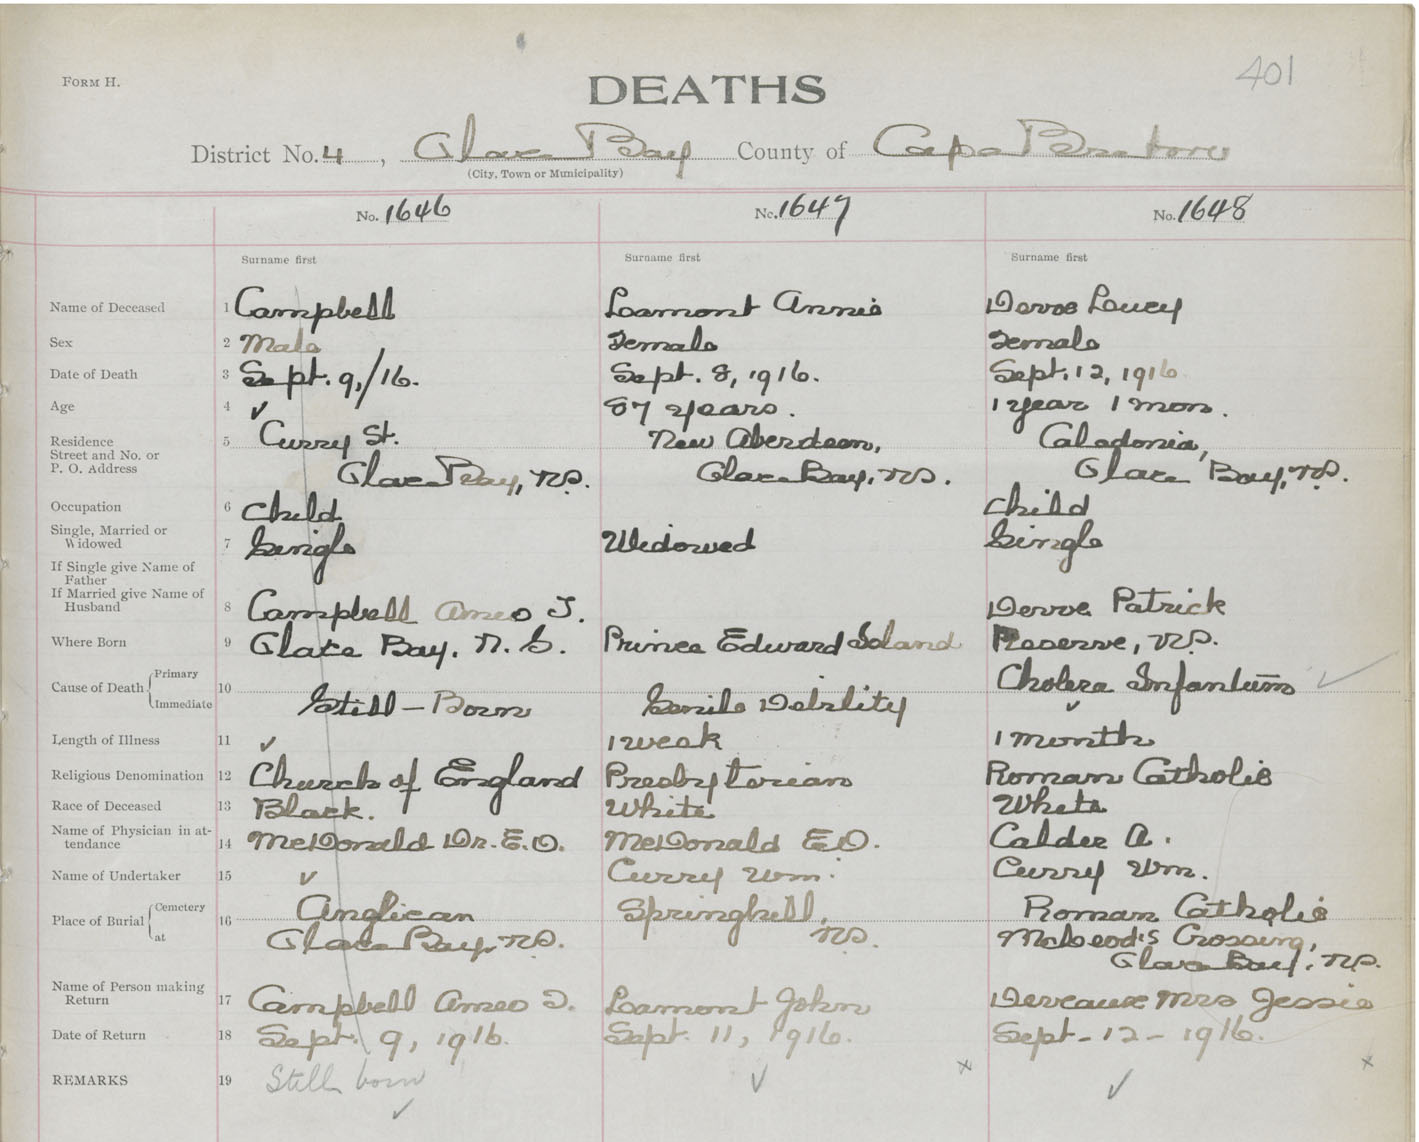 FORM H.
401
DEATHS
District No. 4, Glace Bay County of Cape Breton
(City, Town or Municipality)
No. 1646 No. 1647 No. 1648
Surname first Surname first Surname first
Name of Deceased 1 Campbell Lamont Annie Devoe Loucy
Sex 2 Male Female Female
Date of Death 3 Sept. 9,/16. Sept. 8, 1916. Sept. 12, 1916
Age 4 ✓ 87 years. 1 year 1 mon.
Residence 5 Curry St. New Aberdeen, Caledonia,
Street and No. or
P. O. Address Glace Bay, N.S. Glace Bay, N.S. Glace Bay, N.S.
Occupation 6 Child Child
Single, Married or
Widowed 7 Single Widowed Single
If Single give Name of
Father
If Married give Name of
Husband 8 Campbell Ameo J. Devoe Patrick
Where Born 9 Glace Bay, N. S. Prince Edward Island Reserve, N.S.
Cause of Death { Primary 10 Cholera Infantum ✓
Immediate Still-Born Senile Debility ✓
Length of Illness 11 ✓ 1 week 1 month
Religious Denomination 12 Church of England Presbyterian Roman Catholic
Race of Deceased 13 Black. White White
Name of Physician in at-
tendance 14 McDonald Dr. E.O. McDonald E.O. Calder A.
Name of Undertaker 15 ✓ Curry Wm. Curry Wm.
Place of Burial { Cemetery 16 Anglican Springhill, Roman Catholic
at Glace Bay, N.S. N.S. McLeod's Crossing,
Glace Bay, N.S.
Name of Person making
Return 17 Campbell Ameo J. Lamont John Deveaux Mrs Jessie
Date of Return 18 Sept. 9, 1916. Sept. 11, 1916. Sept-12-1916.
REMARKS 19 Still born ✓ ✓ x ✓ x